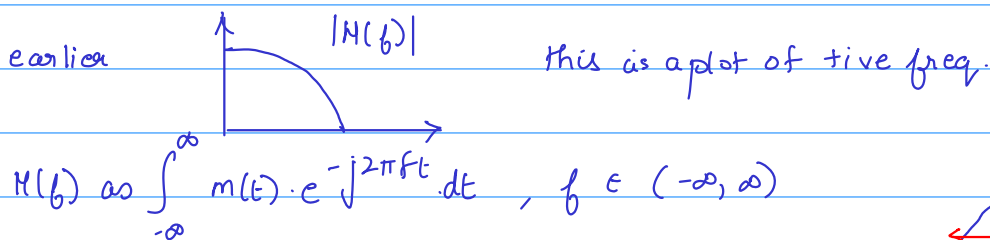 |M(f)|
earlier this is a plot of +ive freq.
M(f) as ∫_{-∞}^{∞} m(t) · e^{-j2πft} · dt , f ∈ (-∞, ∞)